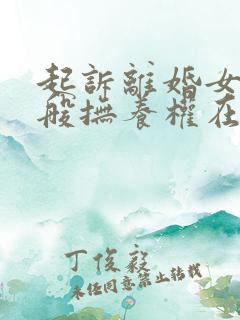 起訴離婚女
般撫養權在
丁俊毅
未经同意禁止转载